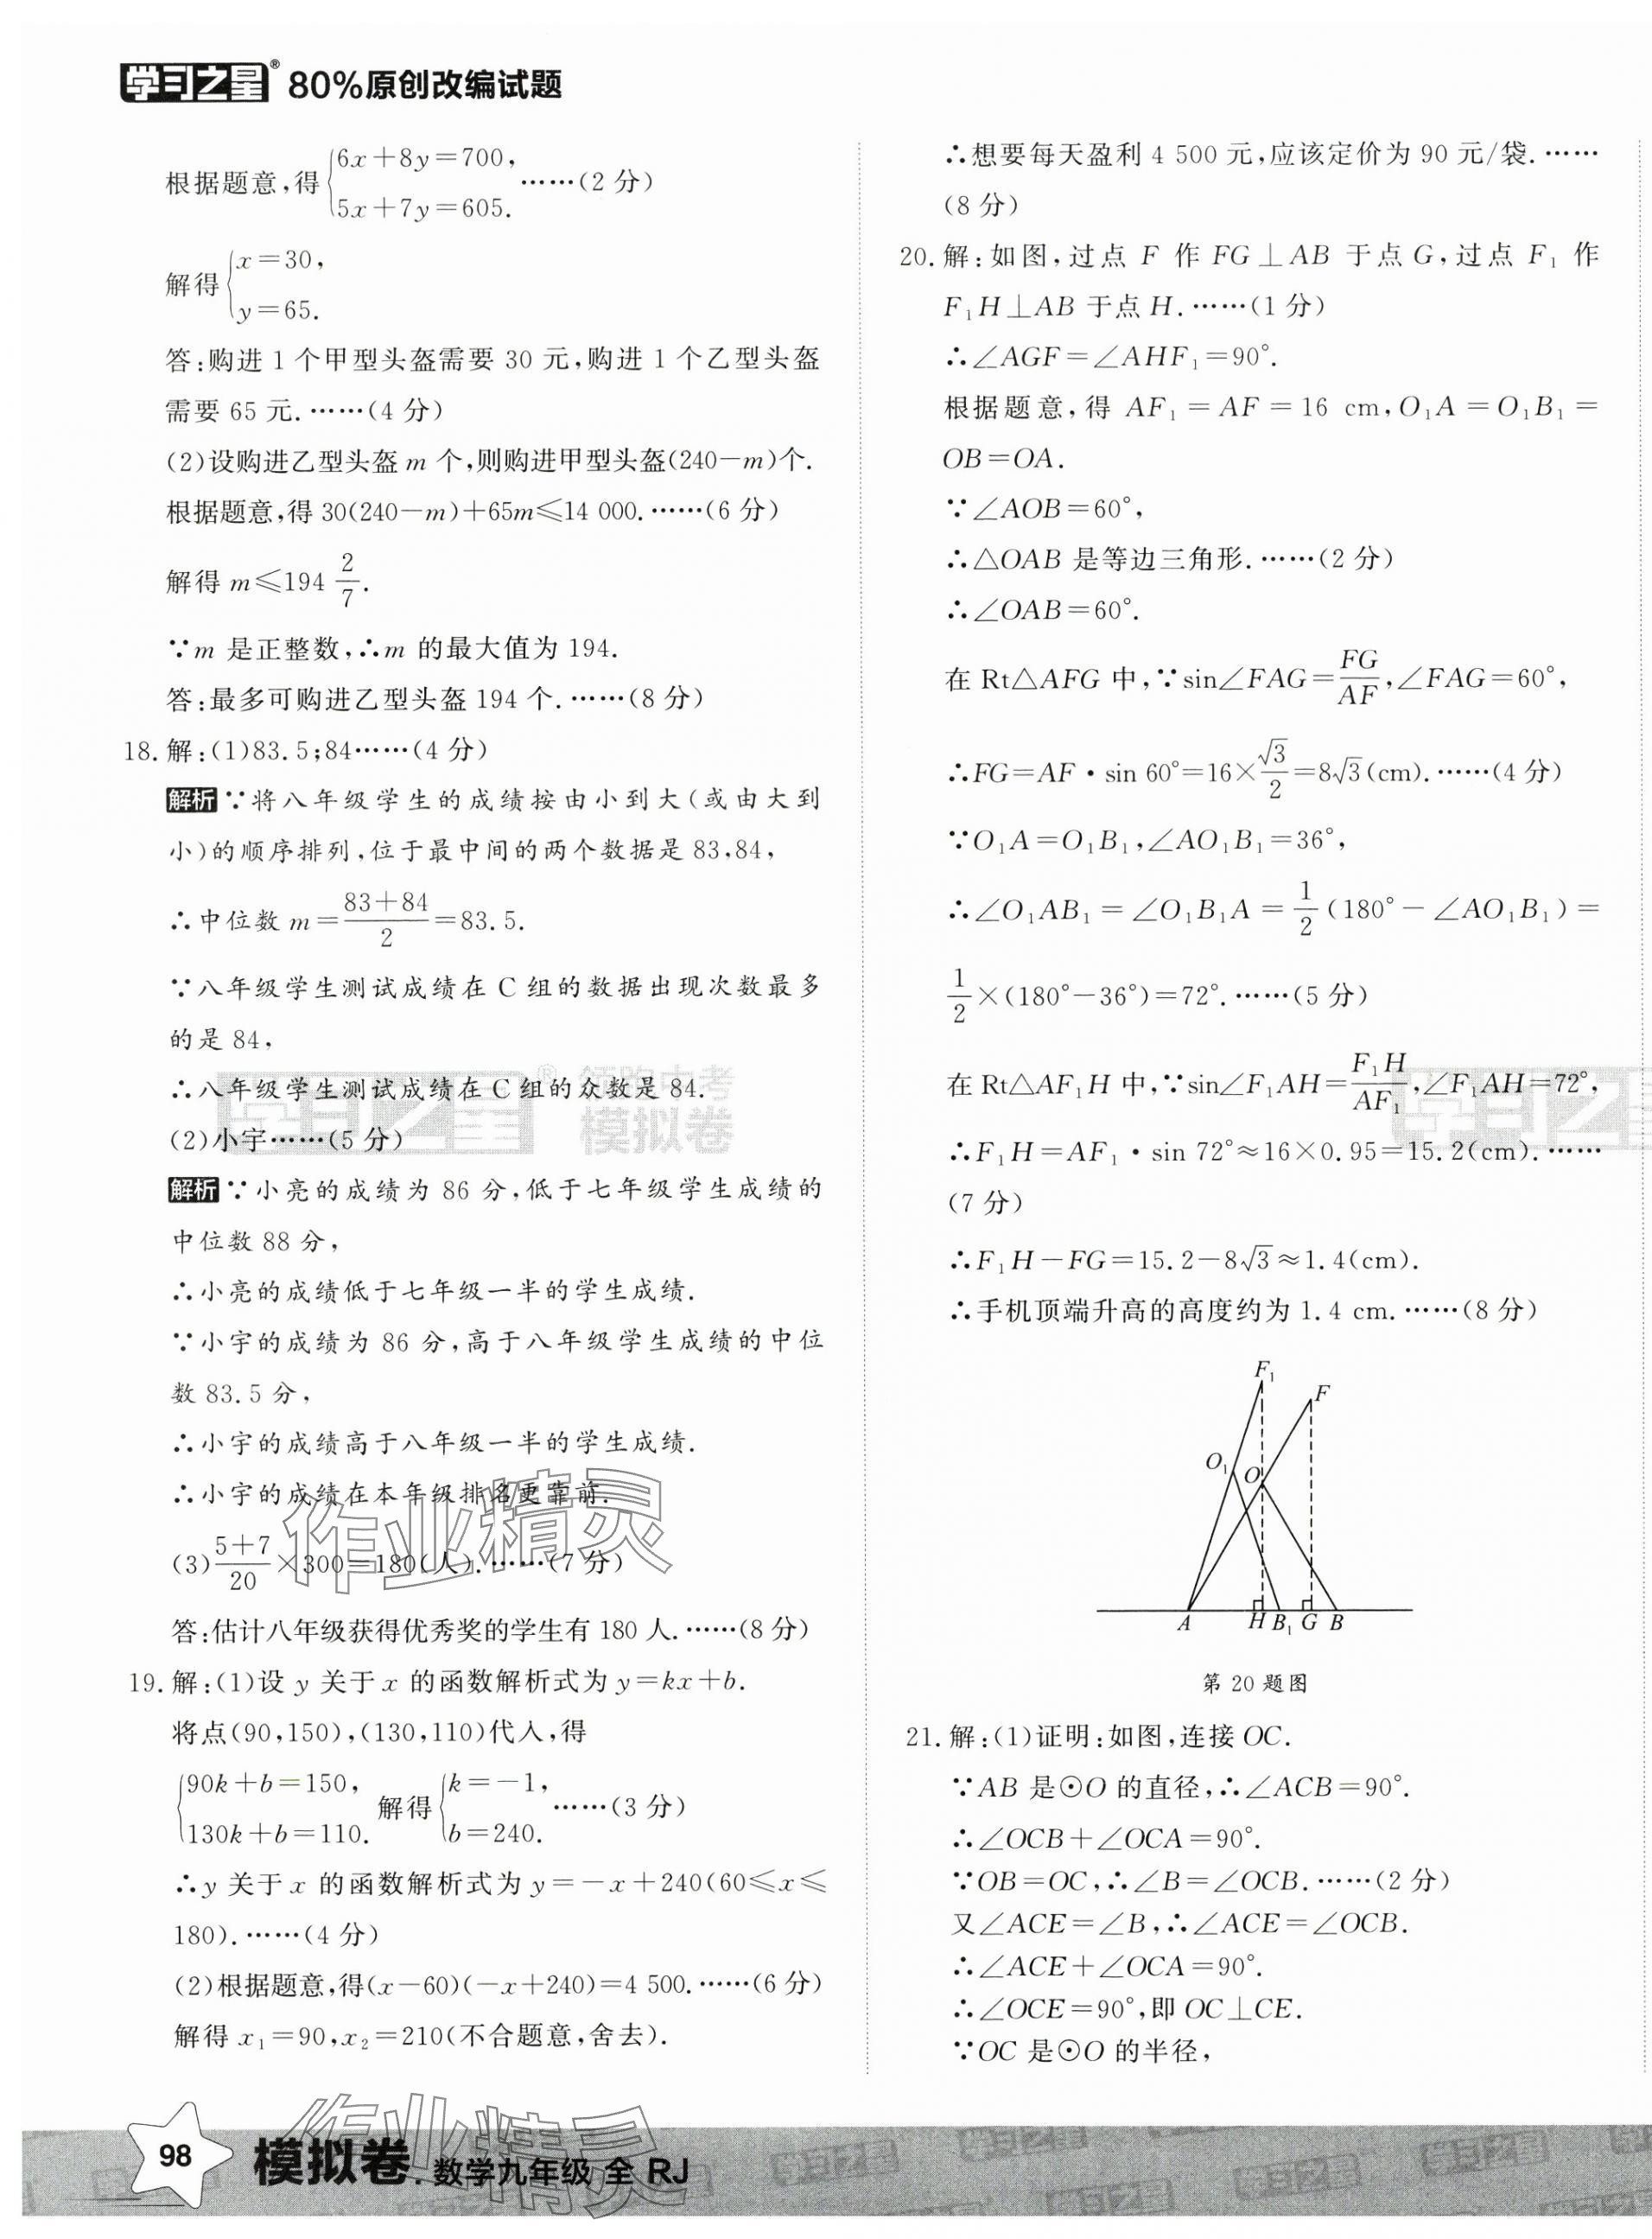 学习之星® 80%原创改编试题
根据题意,得{6x+8y=700, 5x+7y=605. ……(2 分)
解得{x=30, y=65.
答:购进 1 个甲型头盔需要 30 元,购进 1 个乙型头盔
需要 65 元. ……(4 分)
(2)设购进乙型头盔 m 个,则购进甲型头盔(240-m)个.
根据题意,得 30(240-m)+65m≤14 000. ……(6 分)
解得 m≤194 2/7.
∵m 是正整数,∴m 的最大值为 194.
答:最多可购进乙型头盔 194 个. ……(8 分)
18. 解:(1)83.5;84……(4 分)
解析 ∵将八年级学生的成绩按由小到大(或由大到
小)的顺序排列,位于最中间的两个数据是 83,84,
∴中位数 m=(83+84)/2=83.5.
∵八年级学生测试成绩在 C 组的数据出现次数最多
的是 84,
∴八年级学生测试成绩在 C 组的众数是 84.
(2)小宇……(5 分)
解析 ∵小亮的成绩为 86 分,低于七年级学生成绩的
中位数 88 分,
∴小亮的成绩低于七年级一半的学生成绩.
∵小宇的成绩为 86 分,高于八年级学生成绩的中位
数 83.5 分,
∴小宇的成绩高于八年级一半的学生成绩.
∴小宇的成绩在本年级排名更靠前.
(3)(5+7)/20×300=180(人). ……(7 分)
答:估计八年级获得优秀奖的学生有 180 人. ……(8 分)
19. 解:(1)设 y 关于 x 的函数解析式为 y=kx+b.
将点(90,150),(130,110)代入,得
{90k+b=150, 130k+b=110. 解得{k=-1, b=240. ……(3 分)
∴y 关于 x 的函数解析式为 y=-x+240(60≤x≤
180). ……(4 分)
(2)根据题意,得(x-60)(-x+240)=4 500. ……(6 分)
解得 x₁=90,x₂=210(不合题意,舍去).
∴想要每天盈利 4 500 元,应该定价为 90 元/袋. ……
(8 分)
20. 解:如图,过点 F 作 FG⊥AB 于点 G,过点 F₁ 作
F₁H⊥AB 于点 H. ……(1 分)
∴∠AGF=∠AHF₁=90°.
根据题意,得 AF₁=AF=16 cm,O₁A=O₁B₁=
OB=OA.
∵∠AOB=60°,
∴△OAB 是等边三角形. ……(2 分)
∴∠OAB=60°.
在 Rt△AFG 中,∵sin∠FAG=FG/AF,∠FAG=60°,
∴FG=AF·sin 60°=16×√3/2=8√3(cm). ……(4 分)
∵O₁A=O₁B₁,∠AO₁B₁=36°,
∴∠O₁AB₁=∠O₁B₁A=1/2(180°-∠AO₁B₁)=
1/2×(180°-36°)=72°. ……(5 分)
在 Rt△AF₁H 中,∵sin∠F₁AH=F₁H/AF₁,∠F₁AH=72°,
∴F₁H=AF₁·sin 72°≈16×0.95=15.2(cm). ……
(7 分)
∴F₁H-FG=15.2-8√3≈1.4(cm).
∴手机顶端升高的高度约为 1.4 cm. ……(8 分)
F₁
F
O₁ O
A H B₁ G B
第 20 题图
21. 解:(1)证明:如图,连接 OC.
∵AB 是⊙O 的直径,∴∠ACB=90°.
∴∠OCB+∠OCA=90°.
∵OB=OC,∴∠B=∠OCB. ……(2 分)
又∠ACE=∠B,∴∠ACE=∠OCB.
∴∠ACE+∠OCA=90°.
∴∠OCE=90°,即 OC⊥CE.
∵OC 是⊙O 的半径,
学习之星® 领跑中考 模拟卷
作业精灵
98 模拟卷. 数学九年级 全 RJ
作业精灵